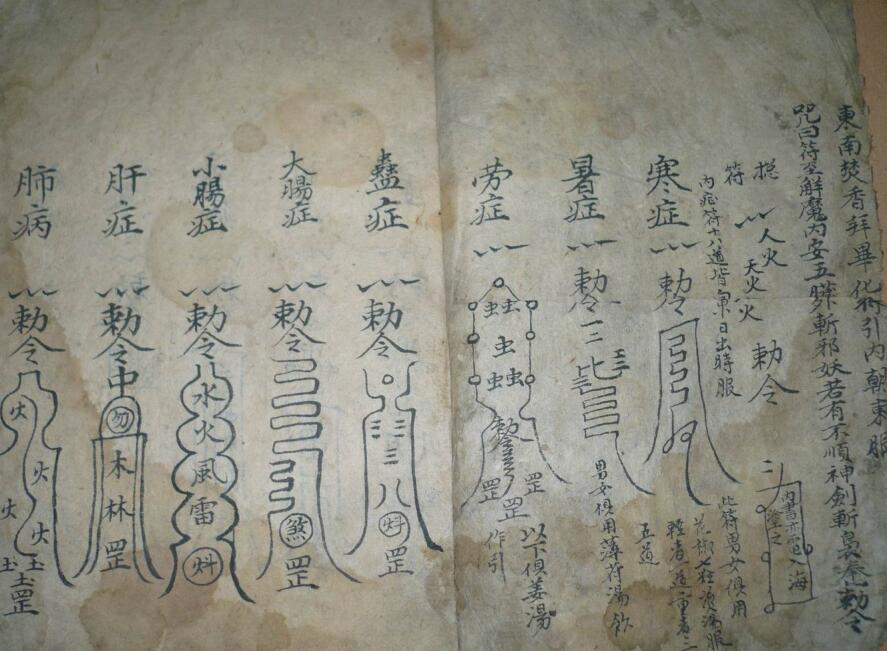 東南焚香拜畢化符引內朝東服
咒曰符至解魔內安五臟斬邪妖若有不順神劍斬鼻奄勅令
符
人火
天火火
勅令
內症符十八道皆東日出時服
此符男女俱用
花椒七粒煎湯服
輕者一道重者三
五道
寒症
勅令
暑症
勅令
三
男女俱用薄荷湯飲
劳症
虫虫
虫
虫虫
罡
罡
罡
以下俱姜湯
作引
蠱症
勅令
三
八
炓
罡
大腸症
勅令
煞
罡
小腸症
勅令
水
火
風
雷
炓
肝症
勅令
中
勿
木
林
罡
肺病
勅令
火
火
火
火
土
土
土
罡